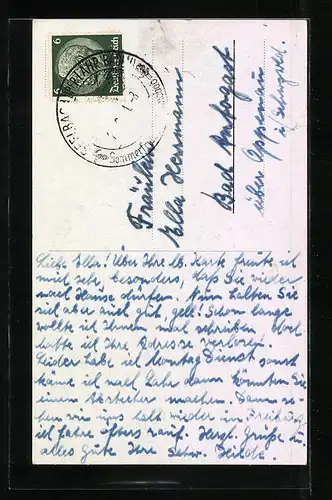 6
Deutsches Reich
6
Fräulein
Ella Herrmann
Bad
über Oppenau
i/
Liebe Ella! Über Ihre lb. Karte freute ich
mich sehr, besonders, daß Sie wieder
nach Hause dürfen. Nun halten Sie
sich aber auch gut, gell! Schon lange
wollte ich Ihnen mal schreiben aber
hatte ich Ihre Adresse verloren.
Leider habe ich Montag Dienst sonst
käme ich nach Lahr dann könnten Sie
einen Abstecher machen. Dann se-
hen wir uns halt wieder in Freiburg
ich fahre öfters rauf. Herzl. Grüße u.
alles gute Ihre Schw. Hilde.